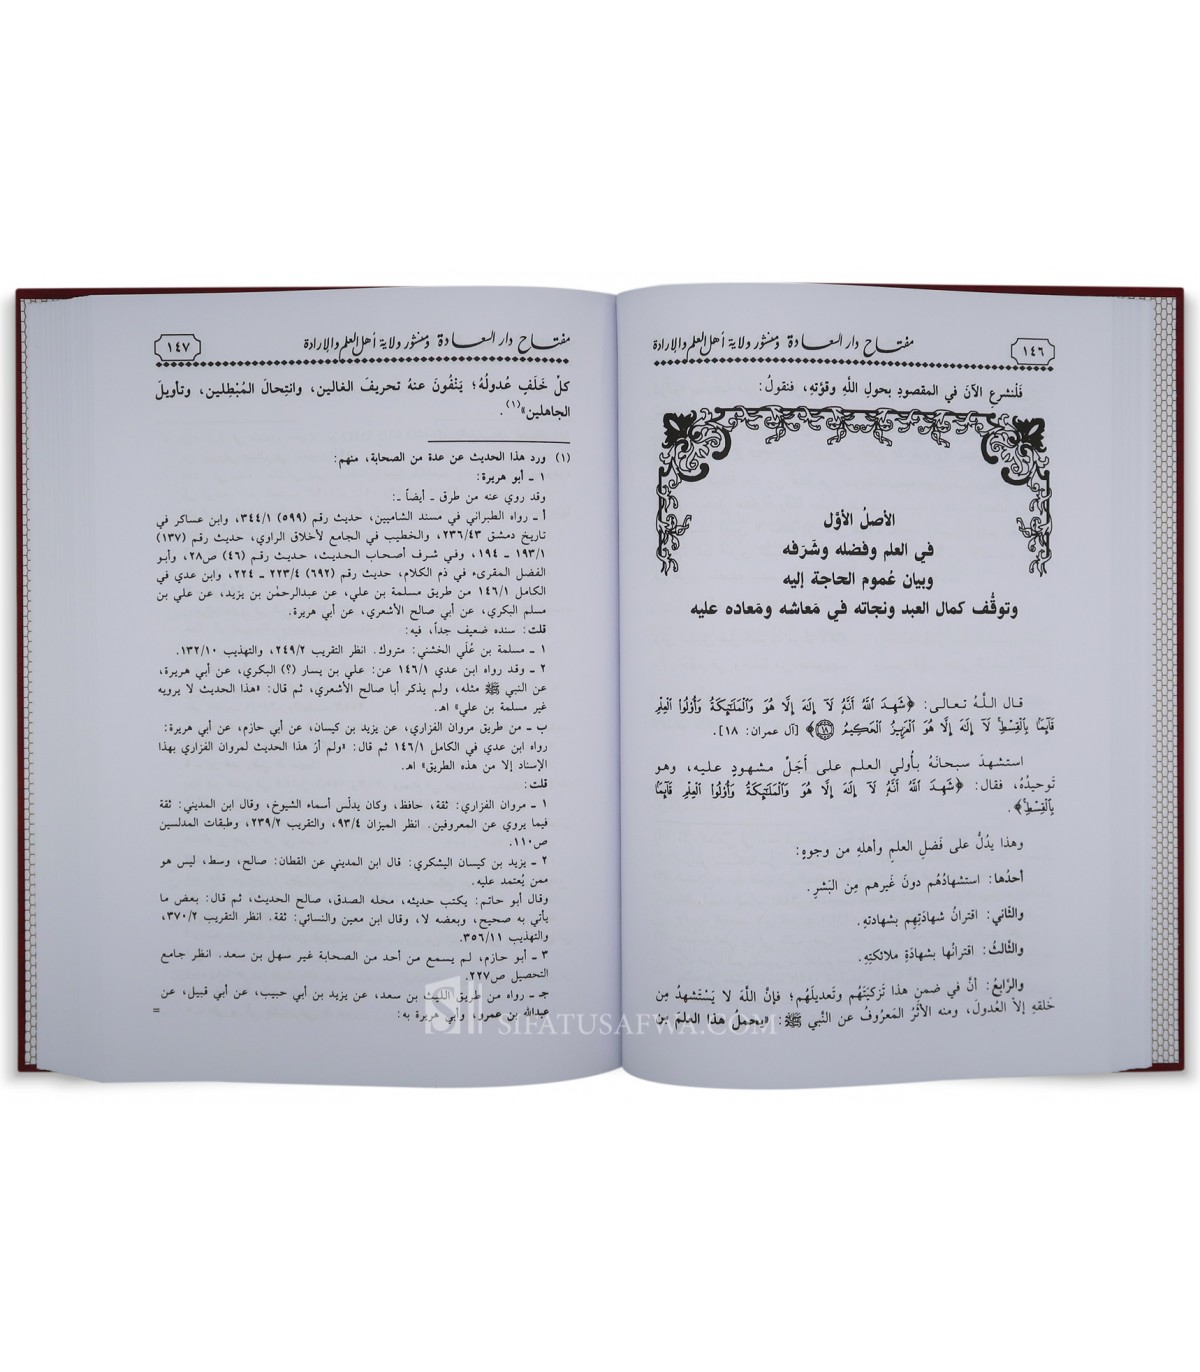 مفتاح دار السعادة ومنشور ولاية أهل العلم والإرادة
١٤٦
فَلْنشرعِ الآنَ في المقصودِ بحولِ اللَّهِ وقوَّتهِ، فنقولُ:
الأصلُ الأوَّل
في العلم وفضله وشَرَفه
وبيان عُموم الحاجة إليه
وتوقُّف كمال العبد ونجاته في مَعاشه ومَعاده عليه
قال اللَّهُ تعالى: ﴿شَهِدَ اللَّهُ أَنَّهُ لَا إِلَهَ إِلَّا هُوَ وَالْمَلَائِكَةُ وَأُوْلُوا الْعِلْمِ
قَائِمًا بِالْقِسْطِ لَا إِلَهَ إِلَّا هُوَ الْعَزِيزُ الْحَكِيمُ ١٨﴾ [آل عمران: ١٨].
استشهدَ سبحانَهُ بأُولي العلم على أَجَلِّ مشهودٍ عليه، وهو
تَوحيدُهُ، فقال: ﴿شَهِدَ اللَّهُ أَنَّهُ لَا إِلَهَ إِلَّا هُوَ وَالْمَلَائِكَةُ وَأُوْلُوا الْعِلْمِ قَائِمًا
بِالْقِسْطِ﴾.
وهذا يدُلُّ على فَضلِ العلمِ وأهلهِ مِن وجوهٍ:
أحدُها: استشهادُهُم دونَ غَيرِهم مِن البَشرِ.
والثَّاني: اقترانُ شهادَتِهم بشهادتهِ.
والثَّالثُ: اقترانُها بشهادَةِ ملائكتِهِ.
والرَّابعُ: أنَّ في ضمنِ هذا تَزكيَتَهُم وتَعديلَهُم؛ فإنَّ اللَّهَ لا يَسْتَشهدُ مِن
خَلقهِ إلاَّ العُدولَ، ومنه الأثَرُ المَعرُوفُ عن النَّبي ﷺ: «يحملُ هذا العِلمَ مِن
مفتاح دار السعادة ومنشور ولاية أهل العلم والإرادة
١٤٧
كلِّ خَلَفٍ عُدولُهُ؛ يَنْفُونَ عنهُ تحريفَ الغالين، وانتِحالَ المُبْطِلين، وتأويلَ
الجاهلين»(١).
(١) ورد هذا الحديث عن عدة من الصحابة، منهم:
١ ـ أبو هريرة:
وقد روي عنه من طرق ـ أيضاً ـ:
أ ـ رواه الطبراني في مسند الشاميين، حديث رقم (٥٩٩) ٣٤٤/١، وابن عساكر في
تاريخ دمشق ٢٣٦/٤٣، والخطيب في الجامع لأخلاق الراوي، حديث رقم (١٣٧)
١٩٣/١ ـ ١٩٤، وفي شرف أصحاب الحديث، حديث رقم (٤٦) ص٢٨، وأبو
الفضل المقرىء في ذم الكلام، حديث رقم (٦٩٢) ٢٢٣/٤ ـ ٢٢٤، وابن عدي في
الكامل ١٤٦/١ من طريق مسلمة بن علي، عن عبدالرحمٰن بن يزيد، عن علي بن
مسلم البكري، عن أبي صالح الأشعري، عن أبي هريرة.
قلت: سنده ضعيف جداً، فيه:
١ ـ مسلمة بن عُلَي الخشني: متروك. انظر التقريب ٢٤٩/٢، والتهذيب ١٣٢/١٠.
٢ ـ وقد رواه ابن عدي ١٤٦/١ عن: علي بن يسار (؟) البكري، عن أبي هريرة،
عن النبي ﷺ مثله، ولم يذكر أبا صالح الأشعري، ثم قال: «هذا الحديث لا يرويه
غير مسلمة بن علي» اهـ.
ب ـ من طريق مروان الفزاري، عن يزيد بن كيسان، عن أبي حازم، عن أبي هريرة:
رواه ابن عدي في الكامل ١٤٦/١ ثم قال: «ولم أرَ هذا الحديث لمروان الفزاري بهذا
الإسناد إلا من هذه الطريق» اهـ.
قلت:
١ ـ مروان الفزاري: ثقة، حافظ، وكان يدلّس أسماء الشيوخ، وقال ابن المديني: ثقة
فيما يروي عن المعروفين. انظر الميزان ٩٣/٤، والتقريب ٢٣٩/٢، وطبقات المدلسين
ص١١٠.
٢ ـ يزيد بن كيسان اليشكري: قال ابن المديني عن القطان: صالح، وسط، ليس هو
ممن يُعتمد عليه.
وقال أبو حاتم: يكتب حديثه، محله الصدق، صالح الحديث، ثم قال: بعض ما
يأتي به صحيح، وبعضه لا، وقال ابن معين والنسائي: ثقة. انظر التقريب ٣٧٠/٢،
والتهذيب ٣٥٦/١١.
٣ ـ أبو حازم، لم يسمع من أحد من الصحابة غير سهل بن سعد. انظر جامع
التحصيل ص٢٢٧.
جـ ـ رواه من طريق الليث بن سعد، عن يزيد بن أبي حبيب، عن أبي قبيل، عن
عبدالله بن عمرو، وأبي هريرة به:
=
SIFATUSAFWA.COM